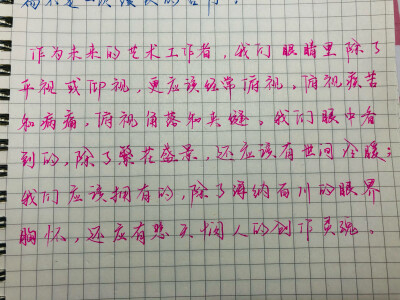 作为未来的艺术工作者，我们眼睛里除了
平视或仰视，更应该经常俯视。俯视疾苦
和病痛，俯视角落和夹缝。我们眼中看
到的，除了繁花盛景，还应该有世间冷暖；
我们应该拥有的，除了海纳百川的眼界
胸怀，还应有悲天悯人的创作灵魂。